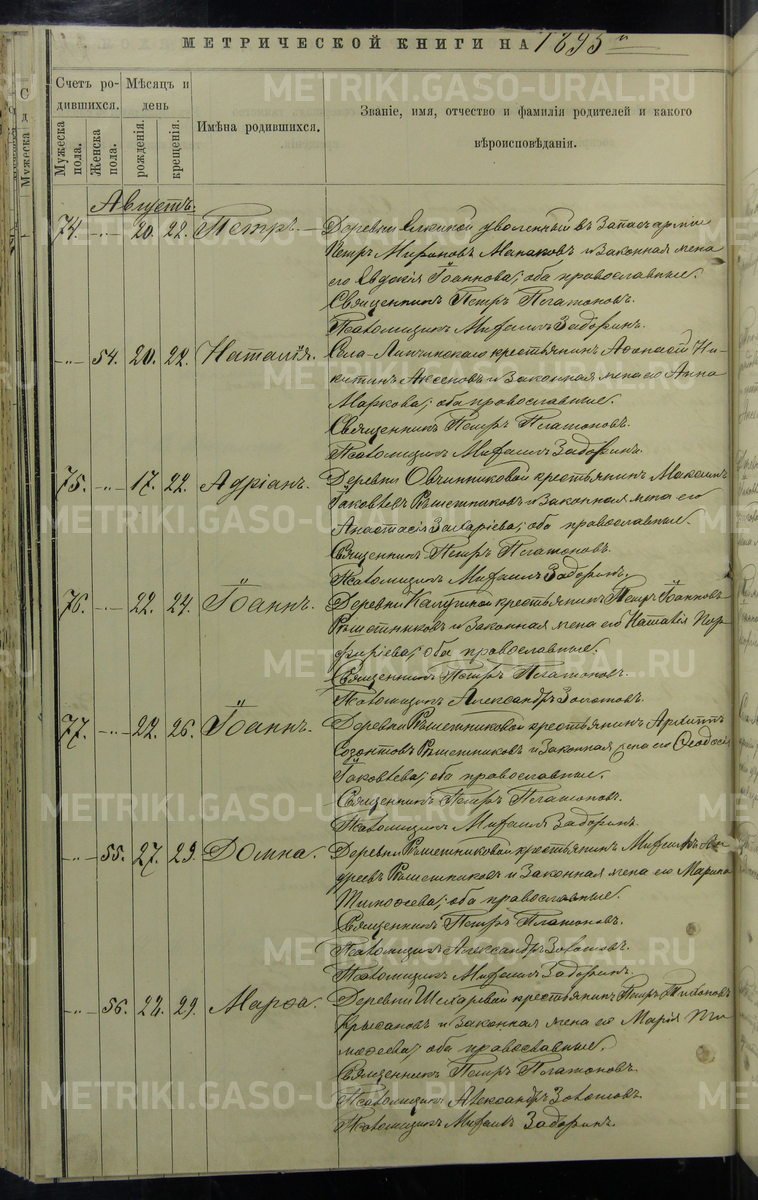 МЕТРИЧЕСКОЙ КНИГИ НА 1895
Счетъ родившихся.
Мѣсяцъ и день
Имѣна родившихся.
Званіе, имя, отчество и фамилія родителей и какого вѣроисповѣданія.
Мужеска пола.
Женска пола.
рожденія.
крещенія.
Августъ.
74. -"- 20. 22. Петръ. Деревни Елкиной уволенный въ Запас арміи
Петръ Мироновъ Манаковъ и Законная жена
его Евдокія Іоаннова, оба православные.
Священникъ Петръ Платоновъ.
Псаломщикъ Михаилъ Задоринъ.
-"- 54. 20. 22. Наталія. Села Липчинскаго крестьянинъ Аѳанасій Ни-
китинъ Аксеновъ и Законная жена его Анна
Маркова, оба православные.
Священникъ Петръ Платоновъ.
Псаломщикъ Михаилъ Задоринъ.
75. -"- 17. 22. Адріанъ. Деревни Овчинниковой крестьянинъ Максимъ
Іаковлевъ Рѣшетниковъ и Законная жена его
Анастасія Захаріева, оба православные.
Священникъ Петръ Платоновъ.
Псаломщикъ Михаилъ Задоринъ.
76. -"- 22. 24. Іоаннъ. Деревни крестьянинъ Петръ Іоанновъ
Рѣшетниковъ и Законная жена его Наталія Пор-
фиріева, оба православные.
Священникъ Петръ Платоновъ.
Псаломщикъ Александръ Золотовъ.
77. -"- 22. 26. Іоаннъ. Деревни Рѣшетниковой крестьянинъ Архиппъ
Созонтовъ Рѣшетниковъ и Законная жена его Ѳеодосія
Іаковлева, оба православные.
Священникъ Петръ Платоновъ.
Псаломщикъ Михаилъ Задоринъ.
-"- 55. 27. 29. Домна. Деревни Рѣшетниковой крестьянинъ Михаилъ Ан-
дреевъ Рѣшетниковъ и Законная жена его Марина
Тимоѳеева, оба православные.
Священникъ Петръ Платоновъ.
Псаломщикъ Александръ Золотовъ.
Псаломщикъ Михаилъ Задоринъ.
-"- 56. 28. 29. Марѳа. Деревни крестьянинъ Петръ
и Законная жена его Марія Ти-
моѳеева, оба православные.
Священникъ Петръ Платоновъ.
Псаломщикъ Александръ Золотовъ.
Псаломщикъ Михаилъ Задоринъ.
METRIKI.GASO-URAL.RU